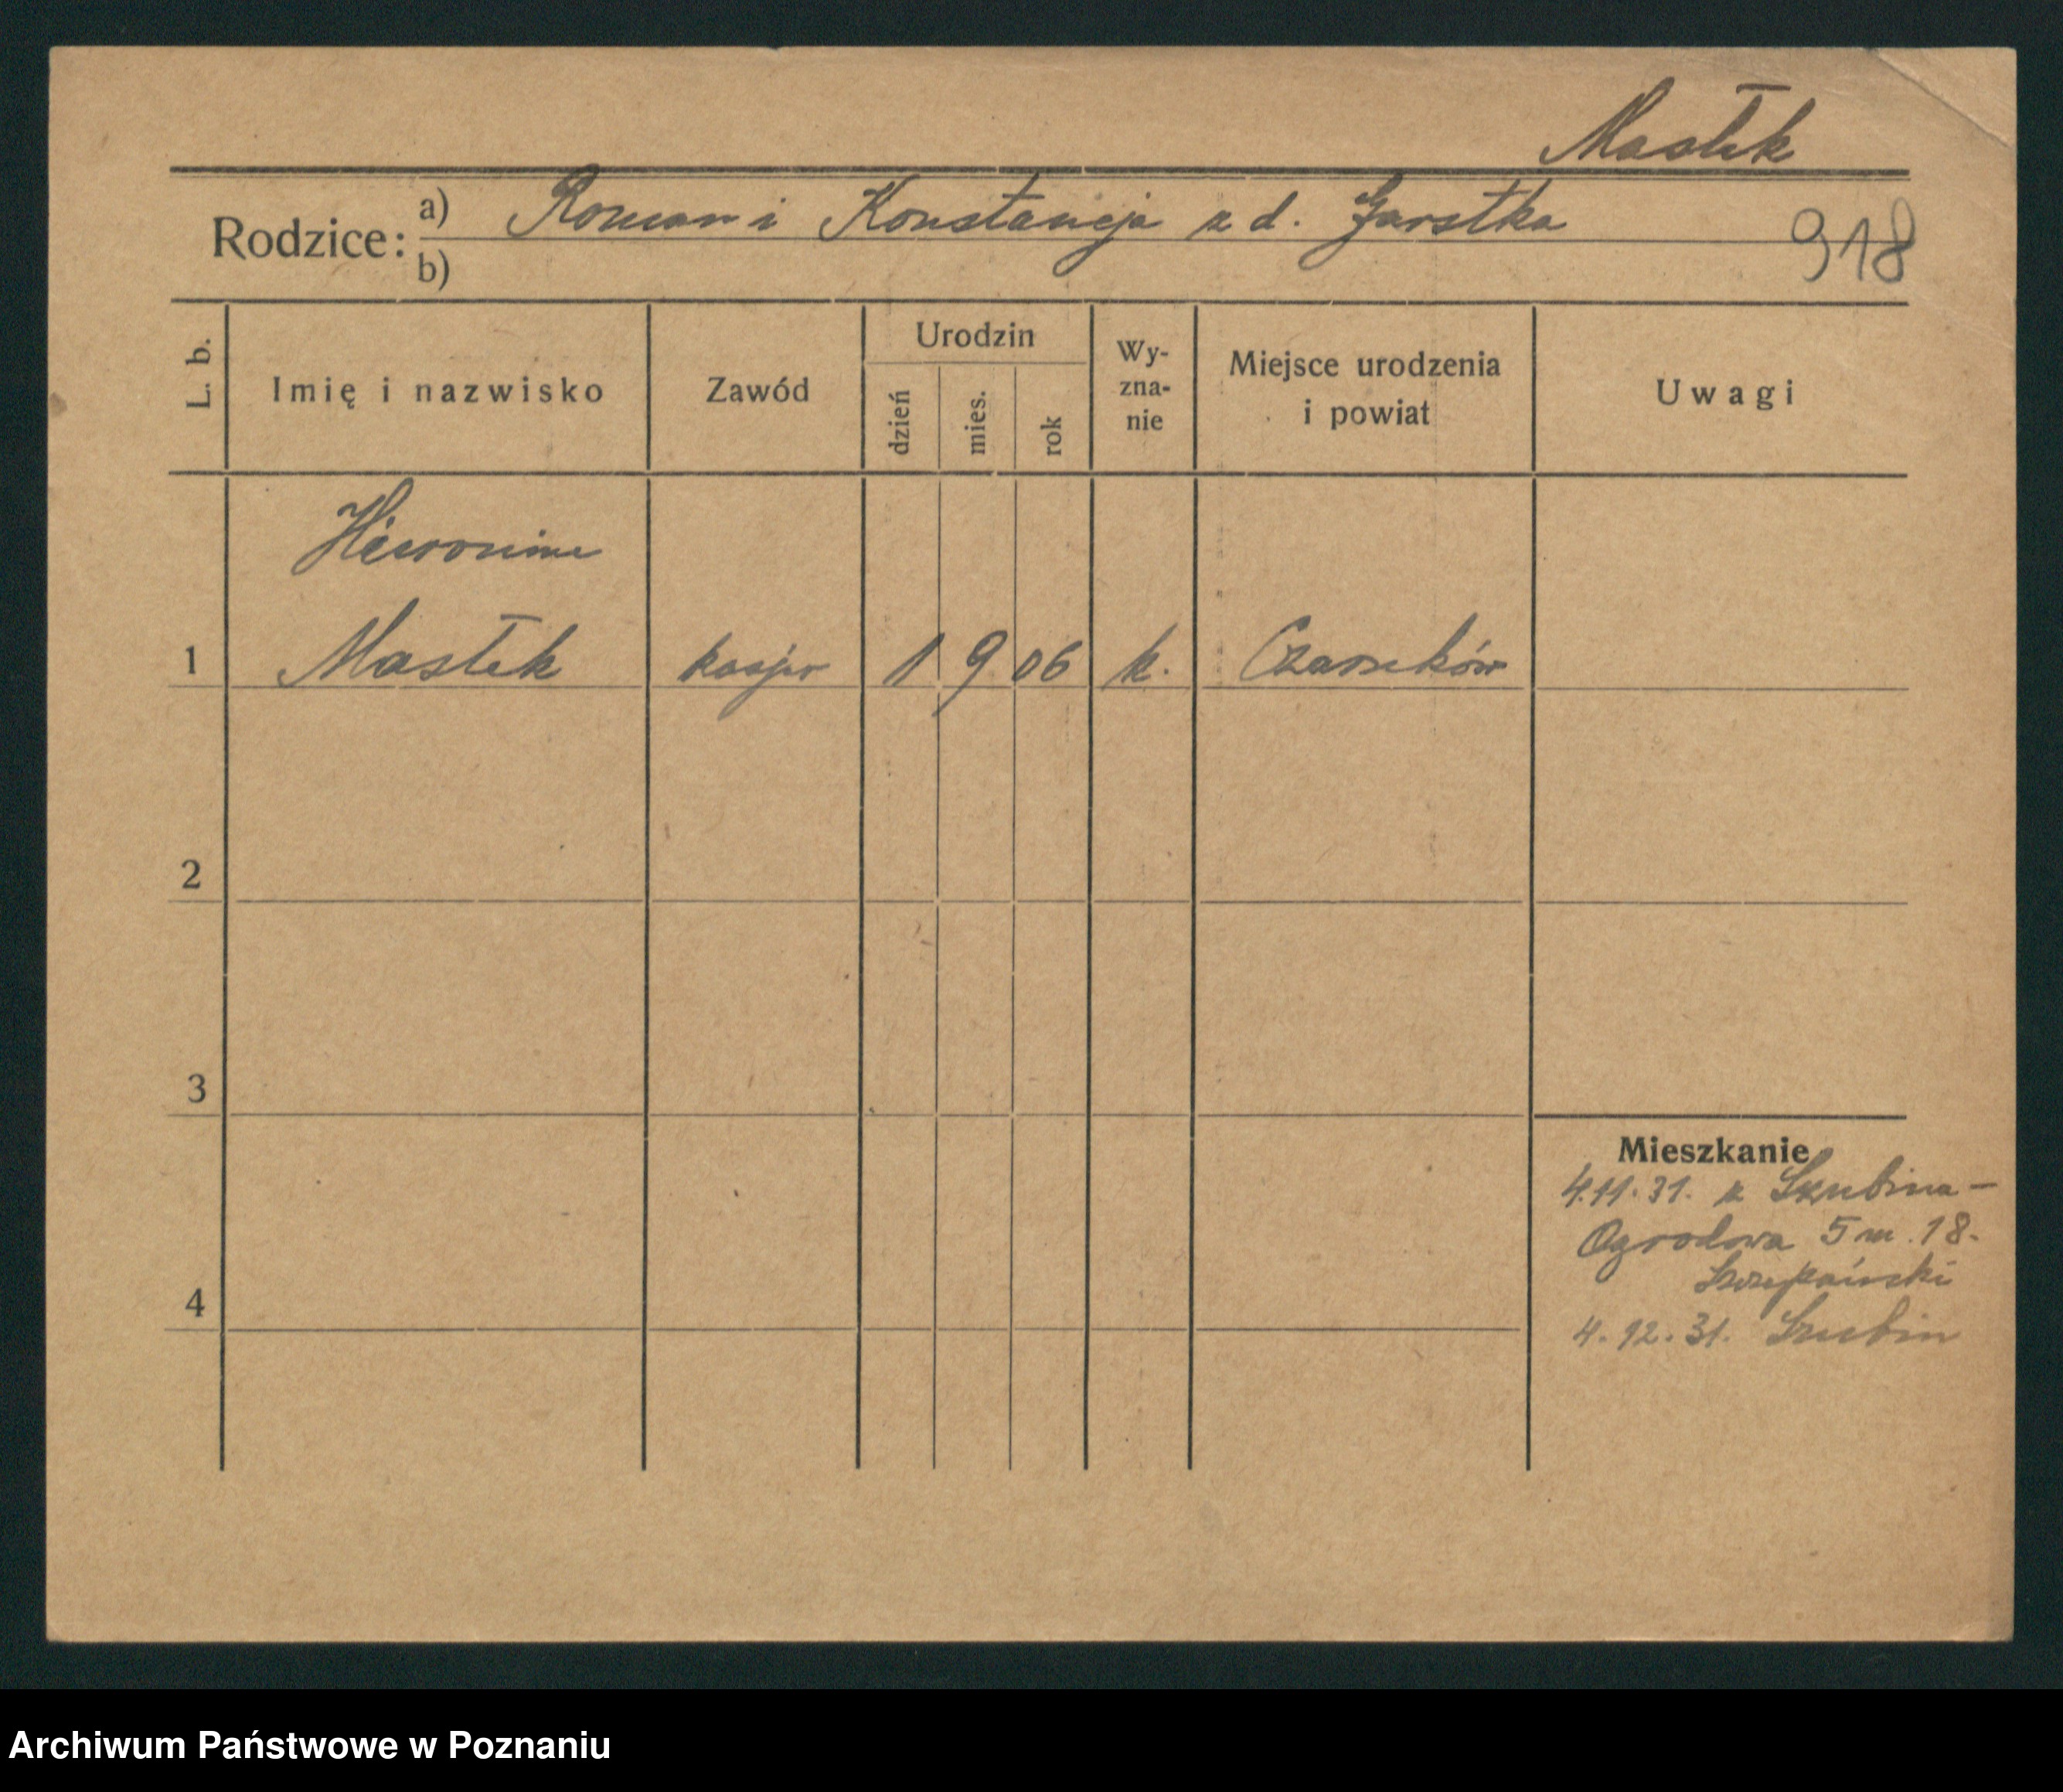 Masłek
Rodzice: a) Roman i Konstancja z d. Garstka
b)
918
L. b.
Imię i nazwisko
Zawód
Urodzin
dzień
mies.
rok
Wy-
zna-
nie
Miejsce urodzenia
i powiat
Uwagi
Hieronim
1 Masłek kasjer 1 9 06 k. Czarnków
2
3
4
Mieszkanie
4.11.31. z Szubina -
Ogrodowa 5 m. 18.
Szczepański
4.12.31. Szubin
Archiwum Państwowe w Poznaniu